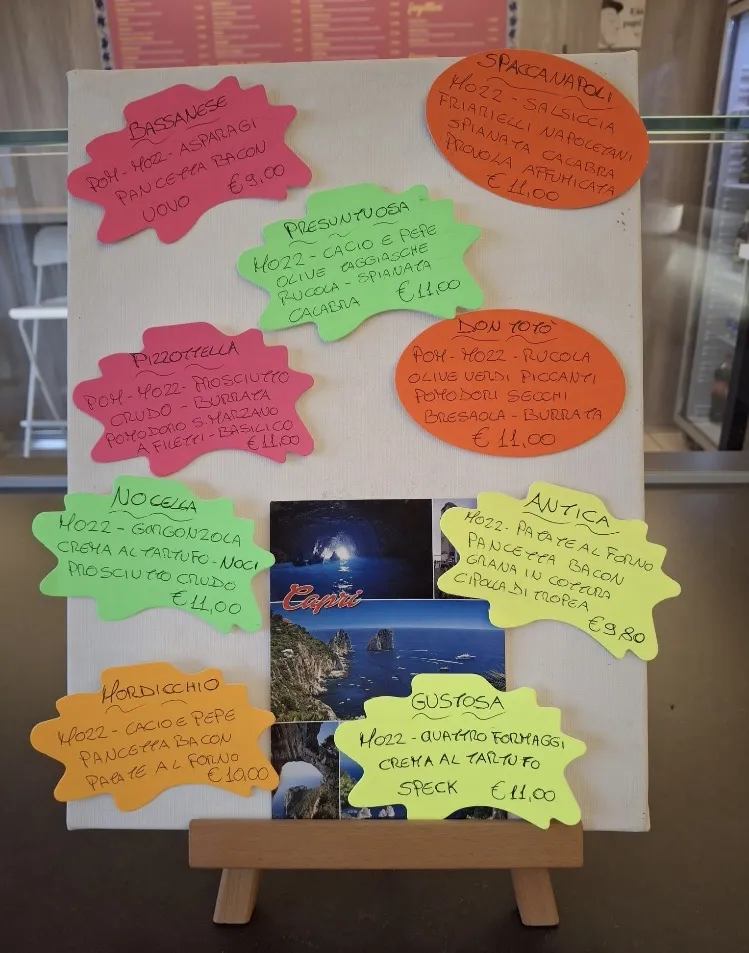 BASSANESE
POM-MOZZ-ASPARAGI
PANCETTA BACON
UOVO €9,00
SPACCANAPOLI
MOZZ-SALSICCIA
FRIARIELLI NAPOLETANI
SPIANATA CALABRA
PROVOLA AFFUMICATA
€11,00
PRESUNTUOSA
MOZZ-CACIO E PEPE
OLIVE TAGGIASCHE
RUCOLA-SPIANATA
CALABRA €11,00
PIZZOTTELLA
POM-MOZZ-PROSCIUTTO
CRUDO-BURRATA
POMODORO S.MARZANO
A FILETTI-BASILICO
€11,00
DON TOTO'
POM-MOZZ-RUCOLA
OLIVE VERDI PICCANTI
POMODORI SECCHI
BRESAOLA-BURRATA
€11,00
NOCELLA
MOZZ-GORGONZOLA
CREMA AL TARTUFO-NOCI
PROSCIUTTO CRUDO
€11,00
ANTICA
MOZZ-PATATE AL FORNO
PANCETTA BACON
GRANA IN COTTURA
CIPOLLA DI TROPEA
€9,80
Capri
MORDICCHIO
MOZZ-CACIO E PEPE
PANCETTA BACON
PATATE AL FORNO
€10,00
GUSTOSA
MOZZ-QUATTRO FORMAGGI
CREMA AL TARTUFO
SPECK €11,00